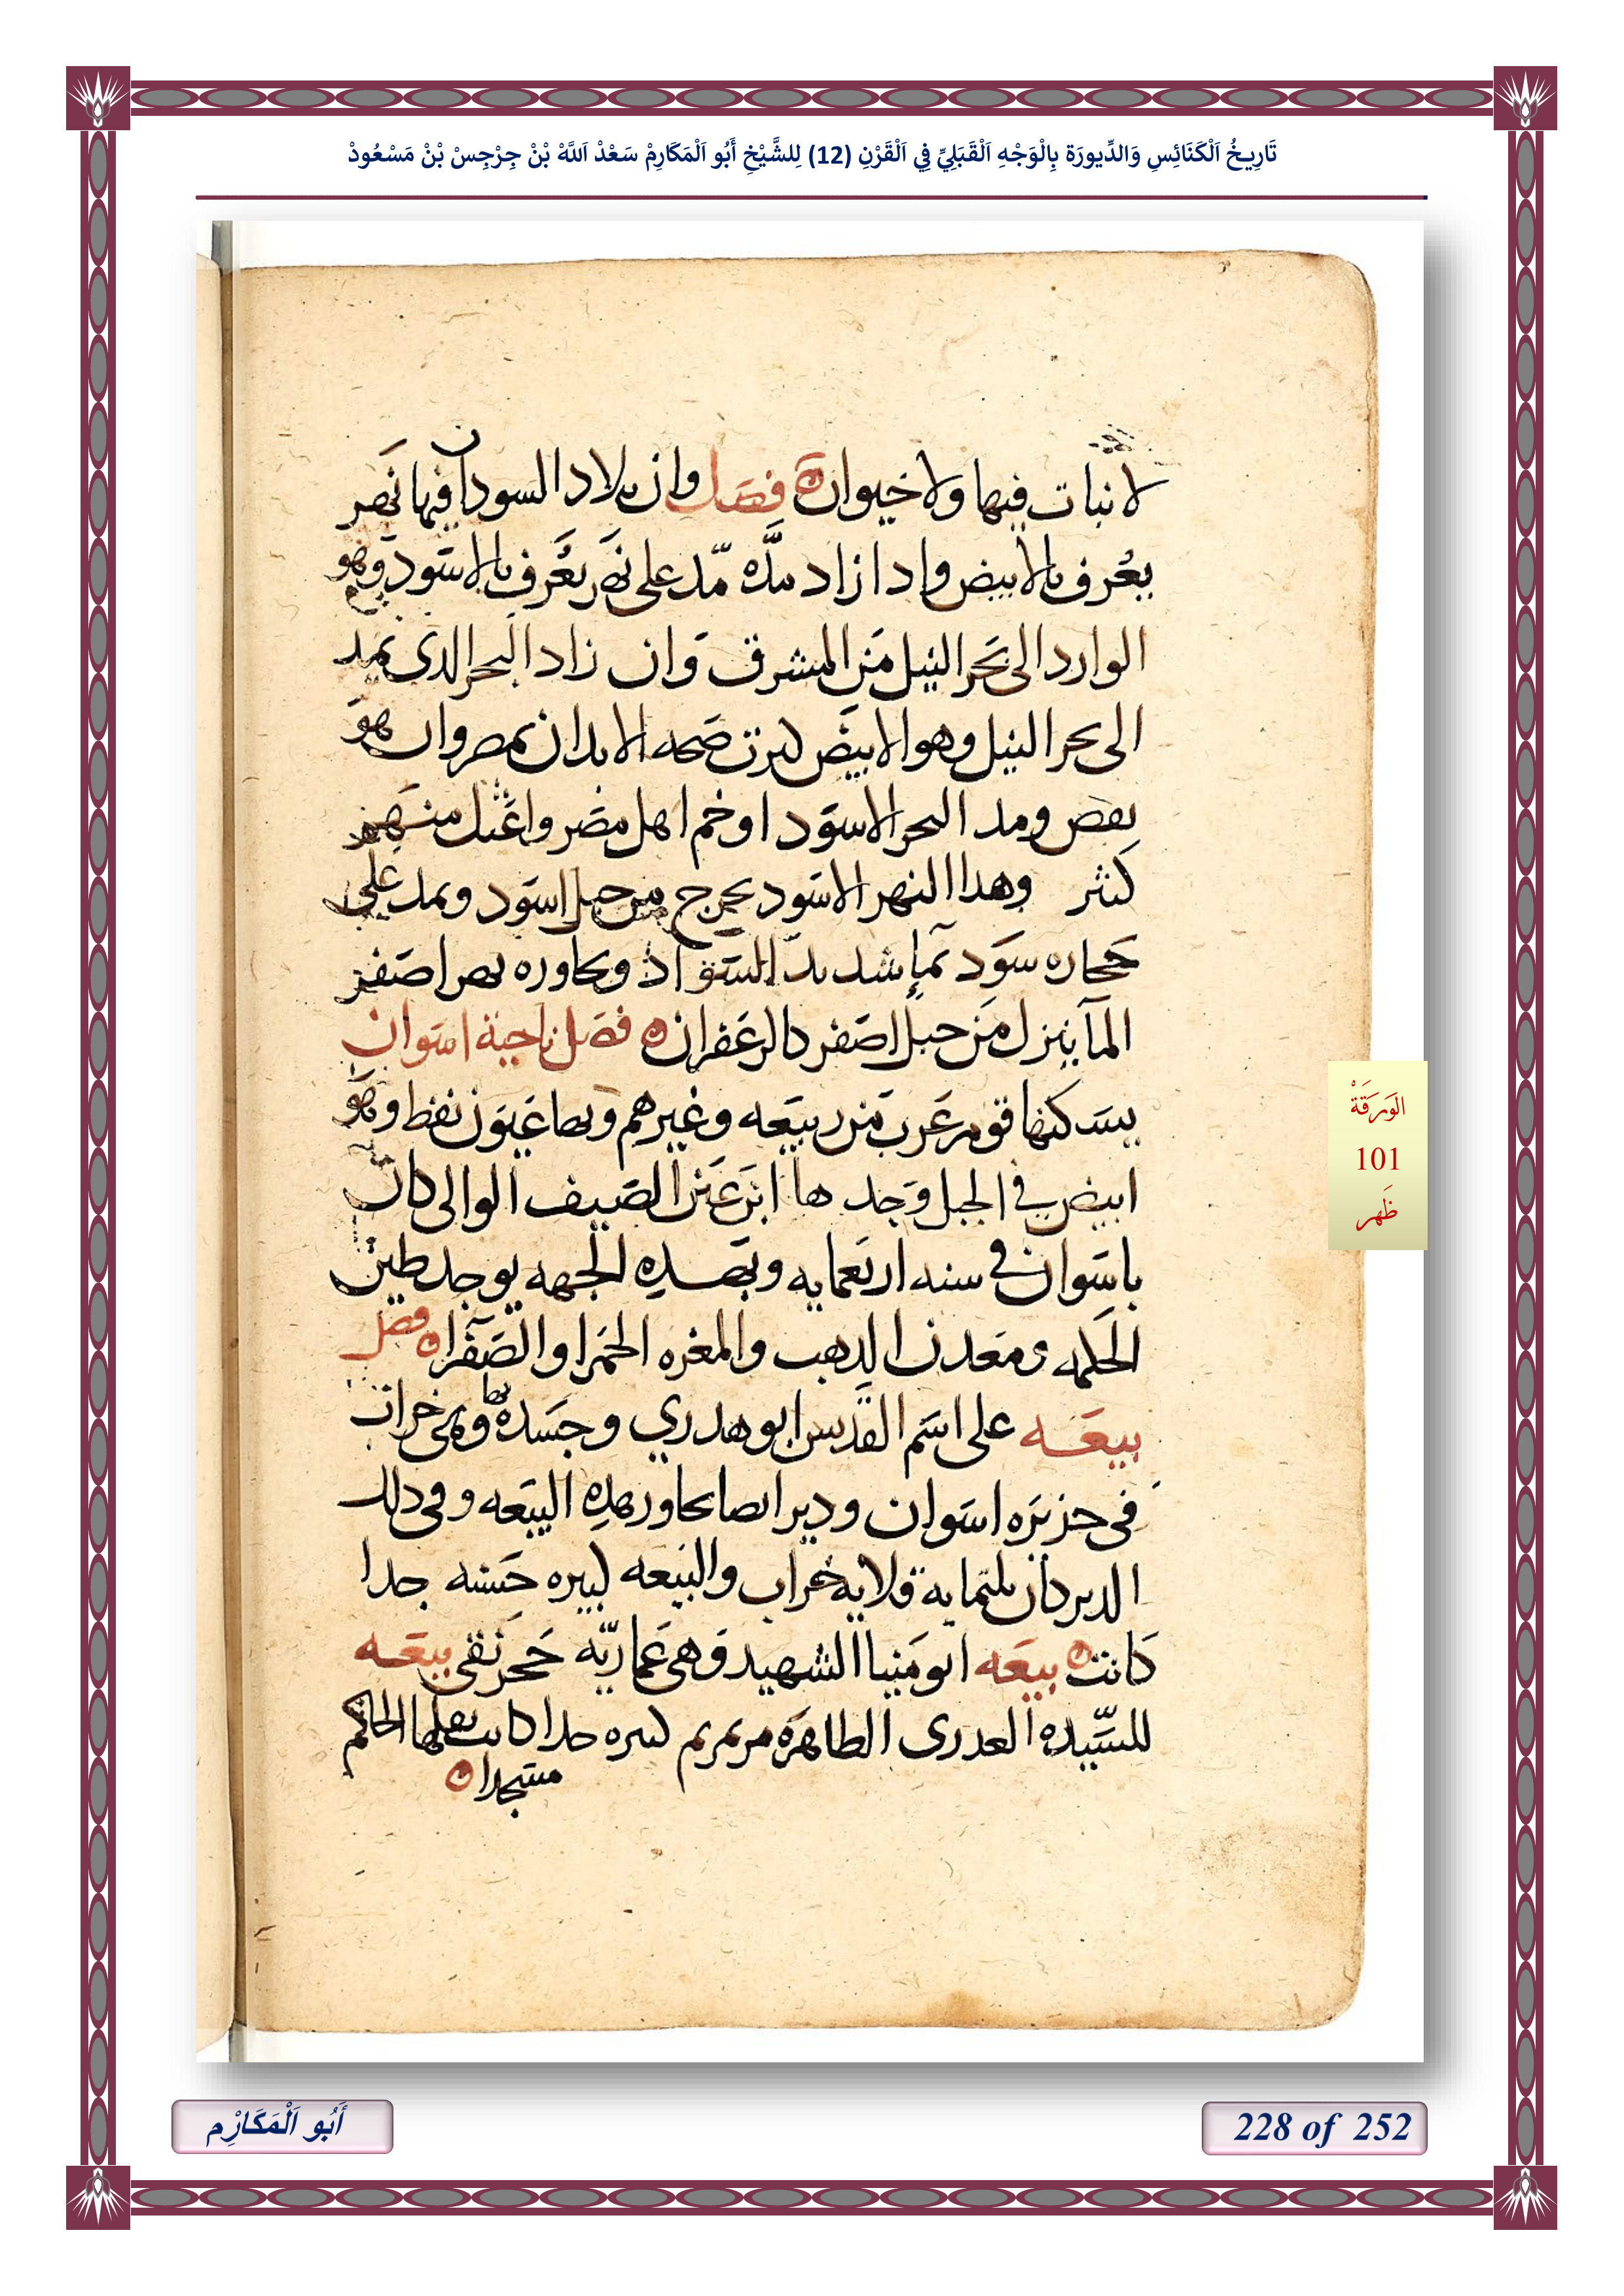 تَارِيخُ اَلْكَنَائِسِ وَالدِّيورَة بِالْوَجْهِ اَلْقَبَلِيِّ فِي اَلْقَرْنِ (12) لِلشَّيْخِ أَبُو اَلْمَكَارِمْ سَعْدْ اَللَّهْ بْنْ جِرْجِسْ بْنْ مَسْعُودْ
لا نبات فيها ولا حيوان فصل وان بلاد السودان فيها نهر
يعرف بالابيض وادا زاد مده مد على نهر يعرف بالاسود وهو
الوارد الى بحر النيل من المشرق وان زاد البحر الدى يمد
الى بحر النيل وهو الابيض كترت صحه الابدان بمصر وان هو
نقص ومد البحر الاسود اوخم اهل مصر واعتل منهم
كثر وهدا النهر الاسود يخرج من جبل اسود ويمد على
حجاره سود بما شديد السواد ويجاوره نهر اصفر
الما ينزل من جبل اصفر كالزعفران فصل ناحية اسوان
يسكنها قوم عرب من ربيعه وغيرهم وبها عيون نفط وهو
ابيض في الجبل وجدها ابن عين الصيف الوالى كان
باسوان في سنه اربعمايه وبهده الجهه يوجد طين
الحكمه ومعدن الدهب والمغره الحمرا والصفرا فصل
بيعه على اسم القديس ابو هدري وجسده بها وهى خراب
في جزيره اسوان ودير ايضا يجاور هده البيعه وفى دلك
الدير كان تلتمايه قلايه خراب والبيعه كبيره حسنه جدا
كانت بيعه ابو منيا الشهيد وهى عماريه حجر نقى بيعه
للسيده العدرى الطاهره مرتمريم كبيره جدا كانت نقلها الحاكم
مسجدا
الوَرَقَةْ
101
ظَهر
أَبُو اَلْمَكَارِْم
228 of 252